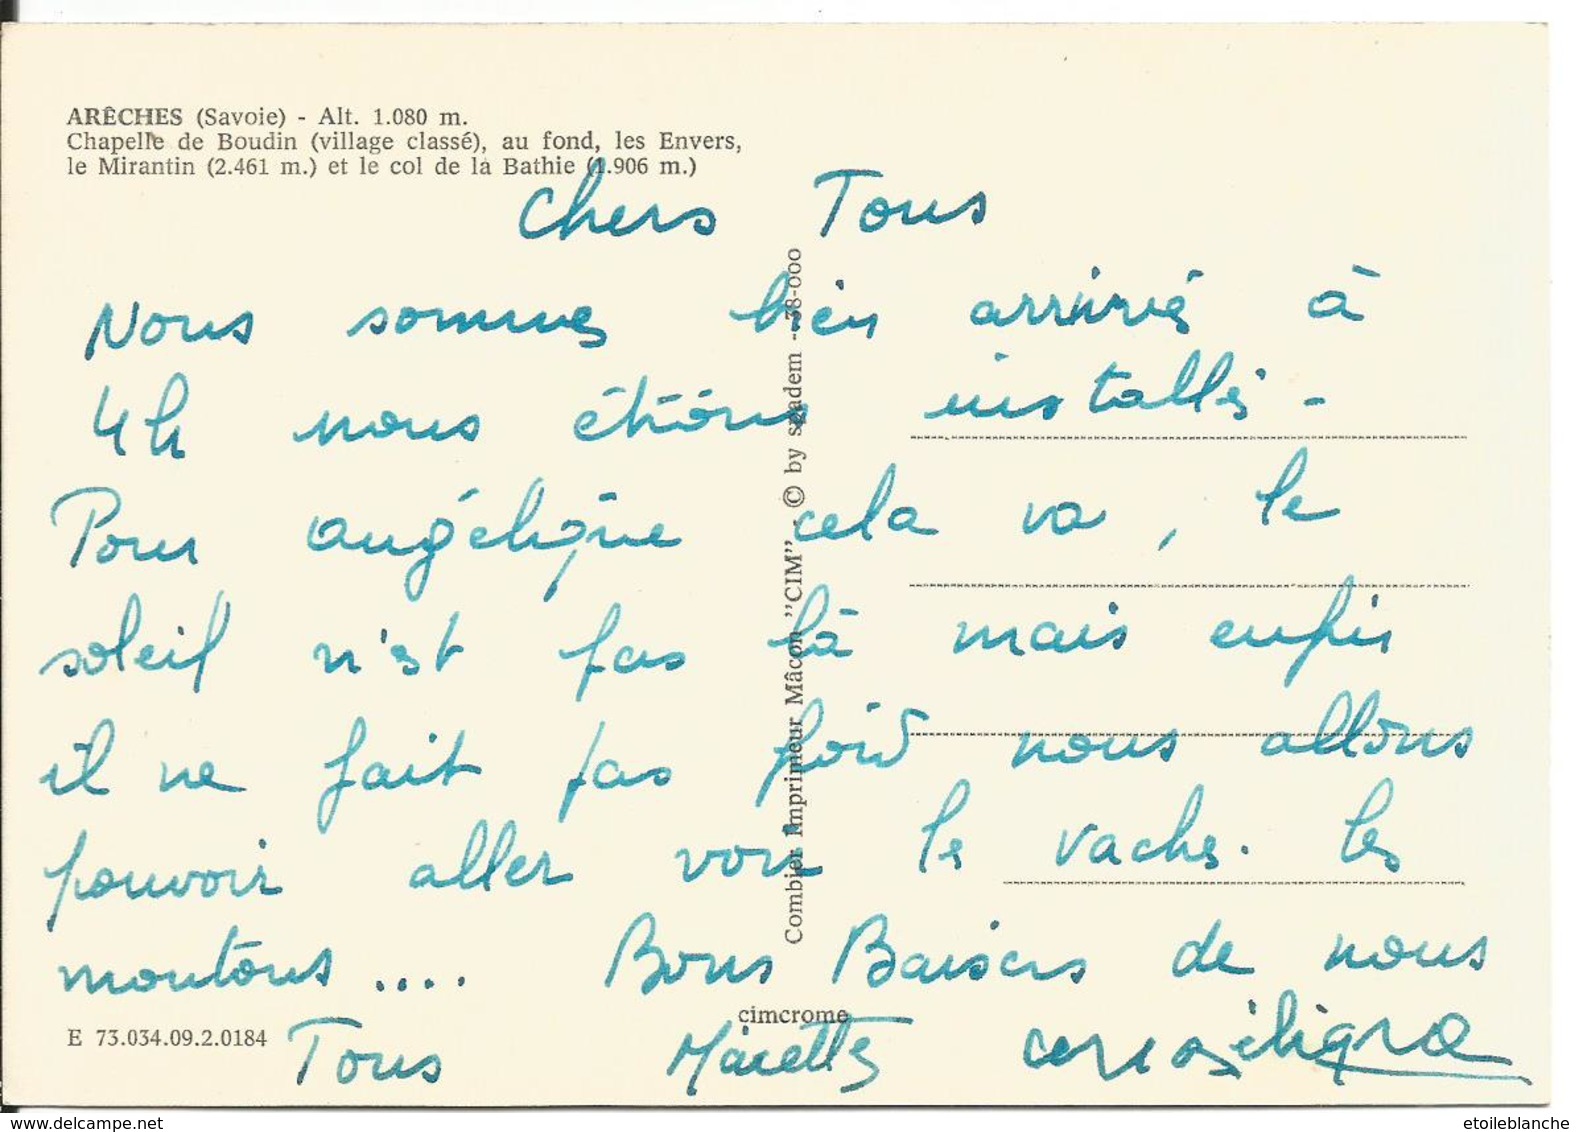 ARÊCHES (Savoie) - Alt. 1.080 m.
Chapelle de Boudin (village classé), au fond, les Envers,
le Mirantin (2.461 m.) et le col de la Bathie (1.906 m.)
Chers Tous
Nous sommes bien arrivés à
4h nous étions installés -
Pour angélique cela va, le
soleil n'est pas là mais enfin
il ne fait pas froid nous allons
pouvoir aller voir les vaches. les
moutons .... Bons Baisers de nous
Tous
Combier Imprimeur Mâcon "CIM" - © by spadem - 38-000
cimcrome
E 73.034.09.2.0184
etoileblanche